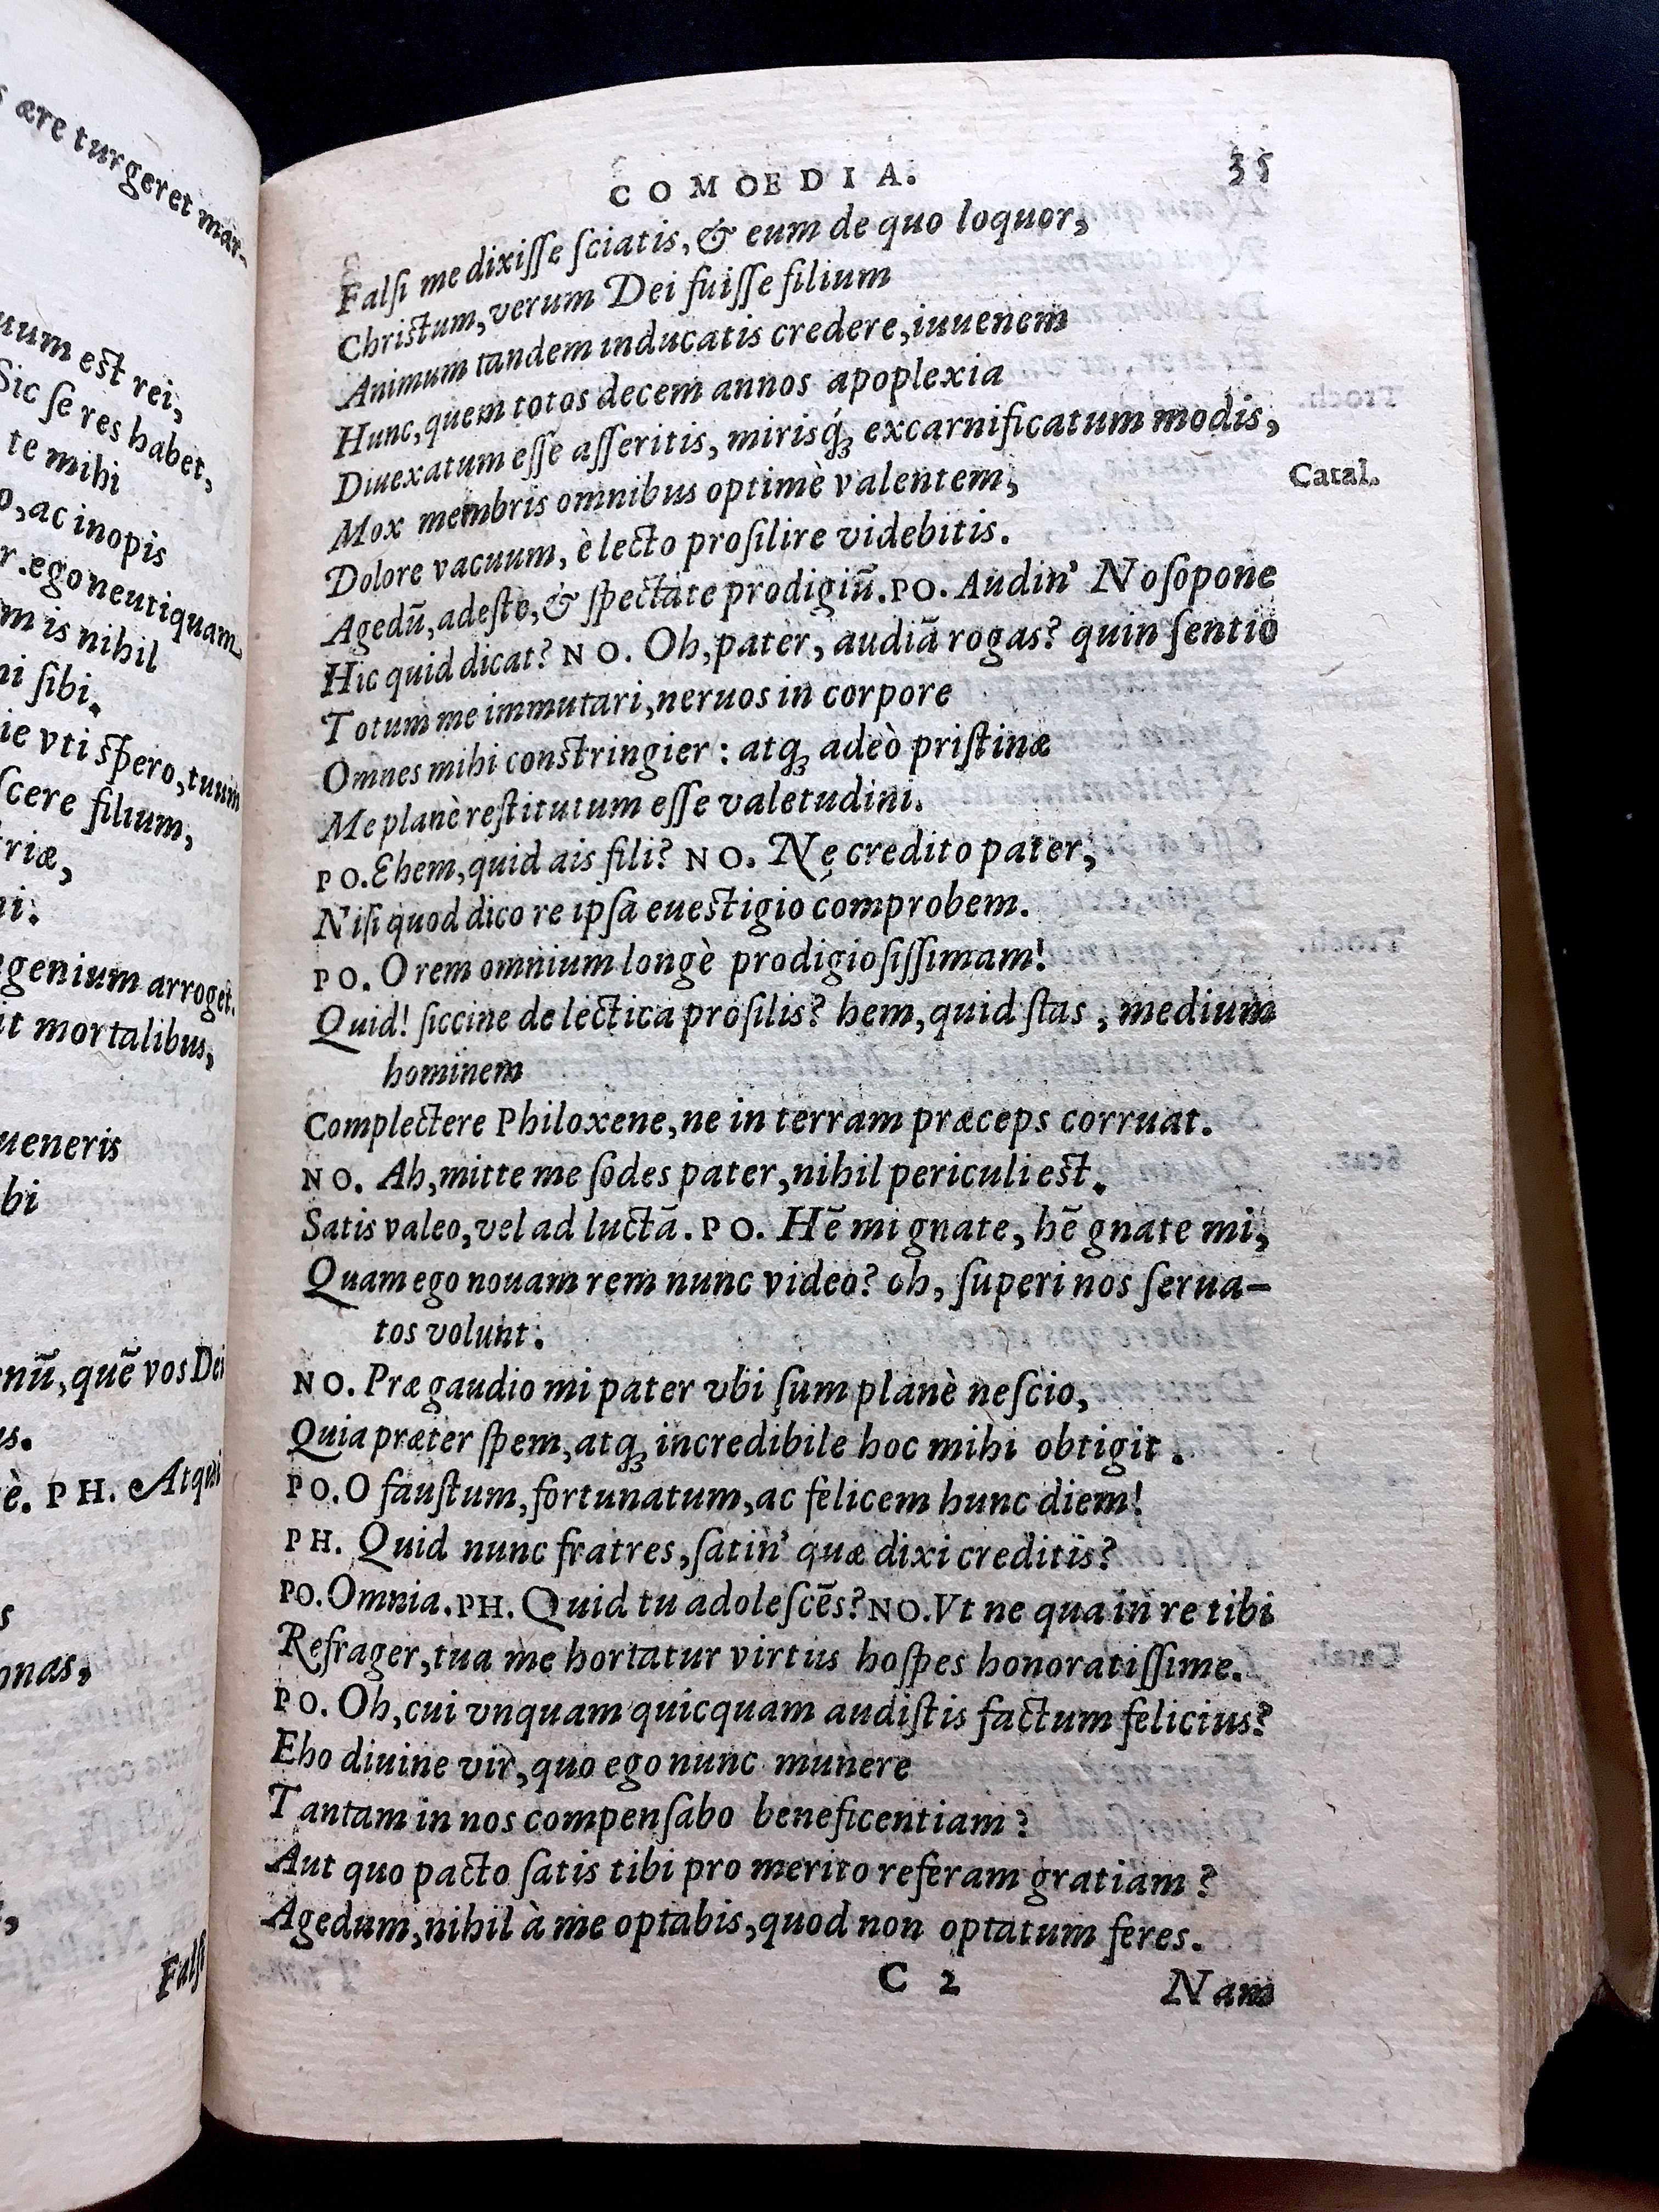 ære turgeret mar-
uum est rei,
Sic ſe res habet,
te mihi
ac inopis
ego neutiquam
is nihil
ſibi.
vti ſpero, tuum
ſcere filium,
triæ,
genium arroget.
mortalibus,
ueneris
bi
quē vos Dei
PH. Atqui
onas,
Falſi
COMOEDIA. 35
Falſi me dixiſſe ſciatis, & eum de quo loquor,
Chriſtum, verum Dei fuiſſe filium
Animum tandem inducatis credere, iuuenem
Hunc, quem totos decem annos apoplexia
Diuexatum eſſe aſſeritis, mirisq́ꝫ excarnificatum modis,
Mox membris omnibus optimè valentem, Catal.
Dolore vacuum, è lecto proſilire videbitis.
Agedū, adeſte, & ſpectate prodigiū. PO. Audin' Noſopone
Hic quid dicat? NO. Oh, pater, audiā rogas? quin ſentio
Totum me immutari, neruos in corpore
Omnes mihi conſtringier: atqꝫ adeò priſtinæ
Me planè reſtitutum eſſe valetudini.
PO. Ehem, quid ais fili? NO. Ne credito pater,
Niſi quod dico re ipſa eueſtigio comprobem.
PO. O rem omnium longè prodigioſiſſimam!
Quid! ſiccine de lectica proſilis? hem, quid ſtas, medium
hominem
Complectere Philoxene, ne in terram præceps corruat.
NO. Ah, mitte me ſodes pater, nihil periculi eſt.
Satis valeo, vel ad luctā. PO. Hē mi gnate, hē gnate mi,
Quam ego nouam rem nunc video? oh, ſuperi nos ſerua-
tos volunt.
NO. Præ gaudio mi pater vbi ſum planè neſcio,
Quia præter ſpem, atqꝫ incredibile hoc mihi obtigit.
PO. O fauſtum, fortunatum, ac felicem hunc diem!
PH. Quid nunc fratres, ſatin' quæ dixi creditis?
PO. Omnia. PH. Quid tu adoleſcēs? NO. Vt ne qua in re tibi
Refrager, tua me hortatur virtus hoſpes honoratiſſime.
PO. Oh, cui vnquam quicquam audiſtis factum felicius?
Eho diuine vir, quo ego nunc munere
Tantam in nos compenſabo beneficentiam?
Aut quo pacto ſatis tibi pro merito referam gratiam?
Agedum, nihil à me optabis, quod non optatum feres.
C 2 Nam